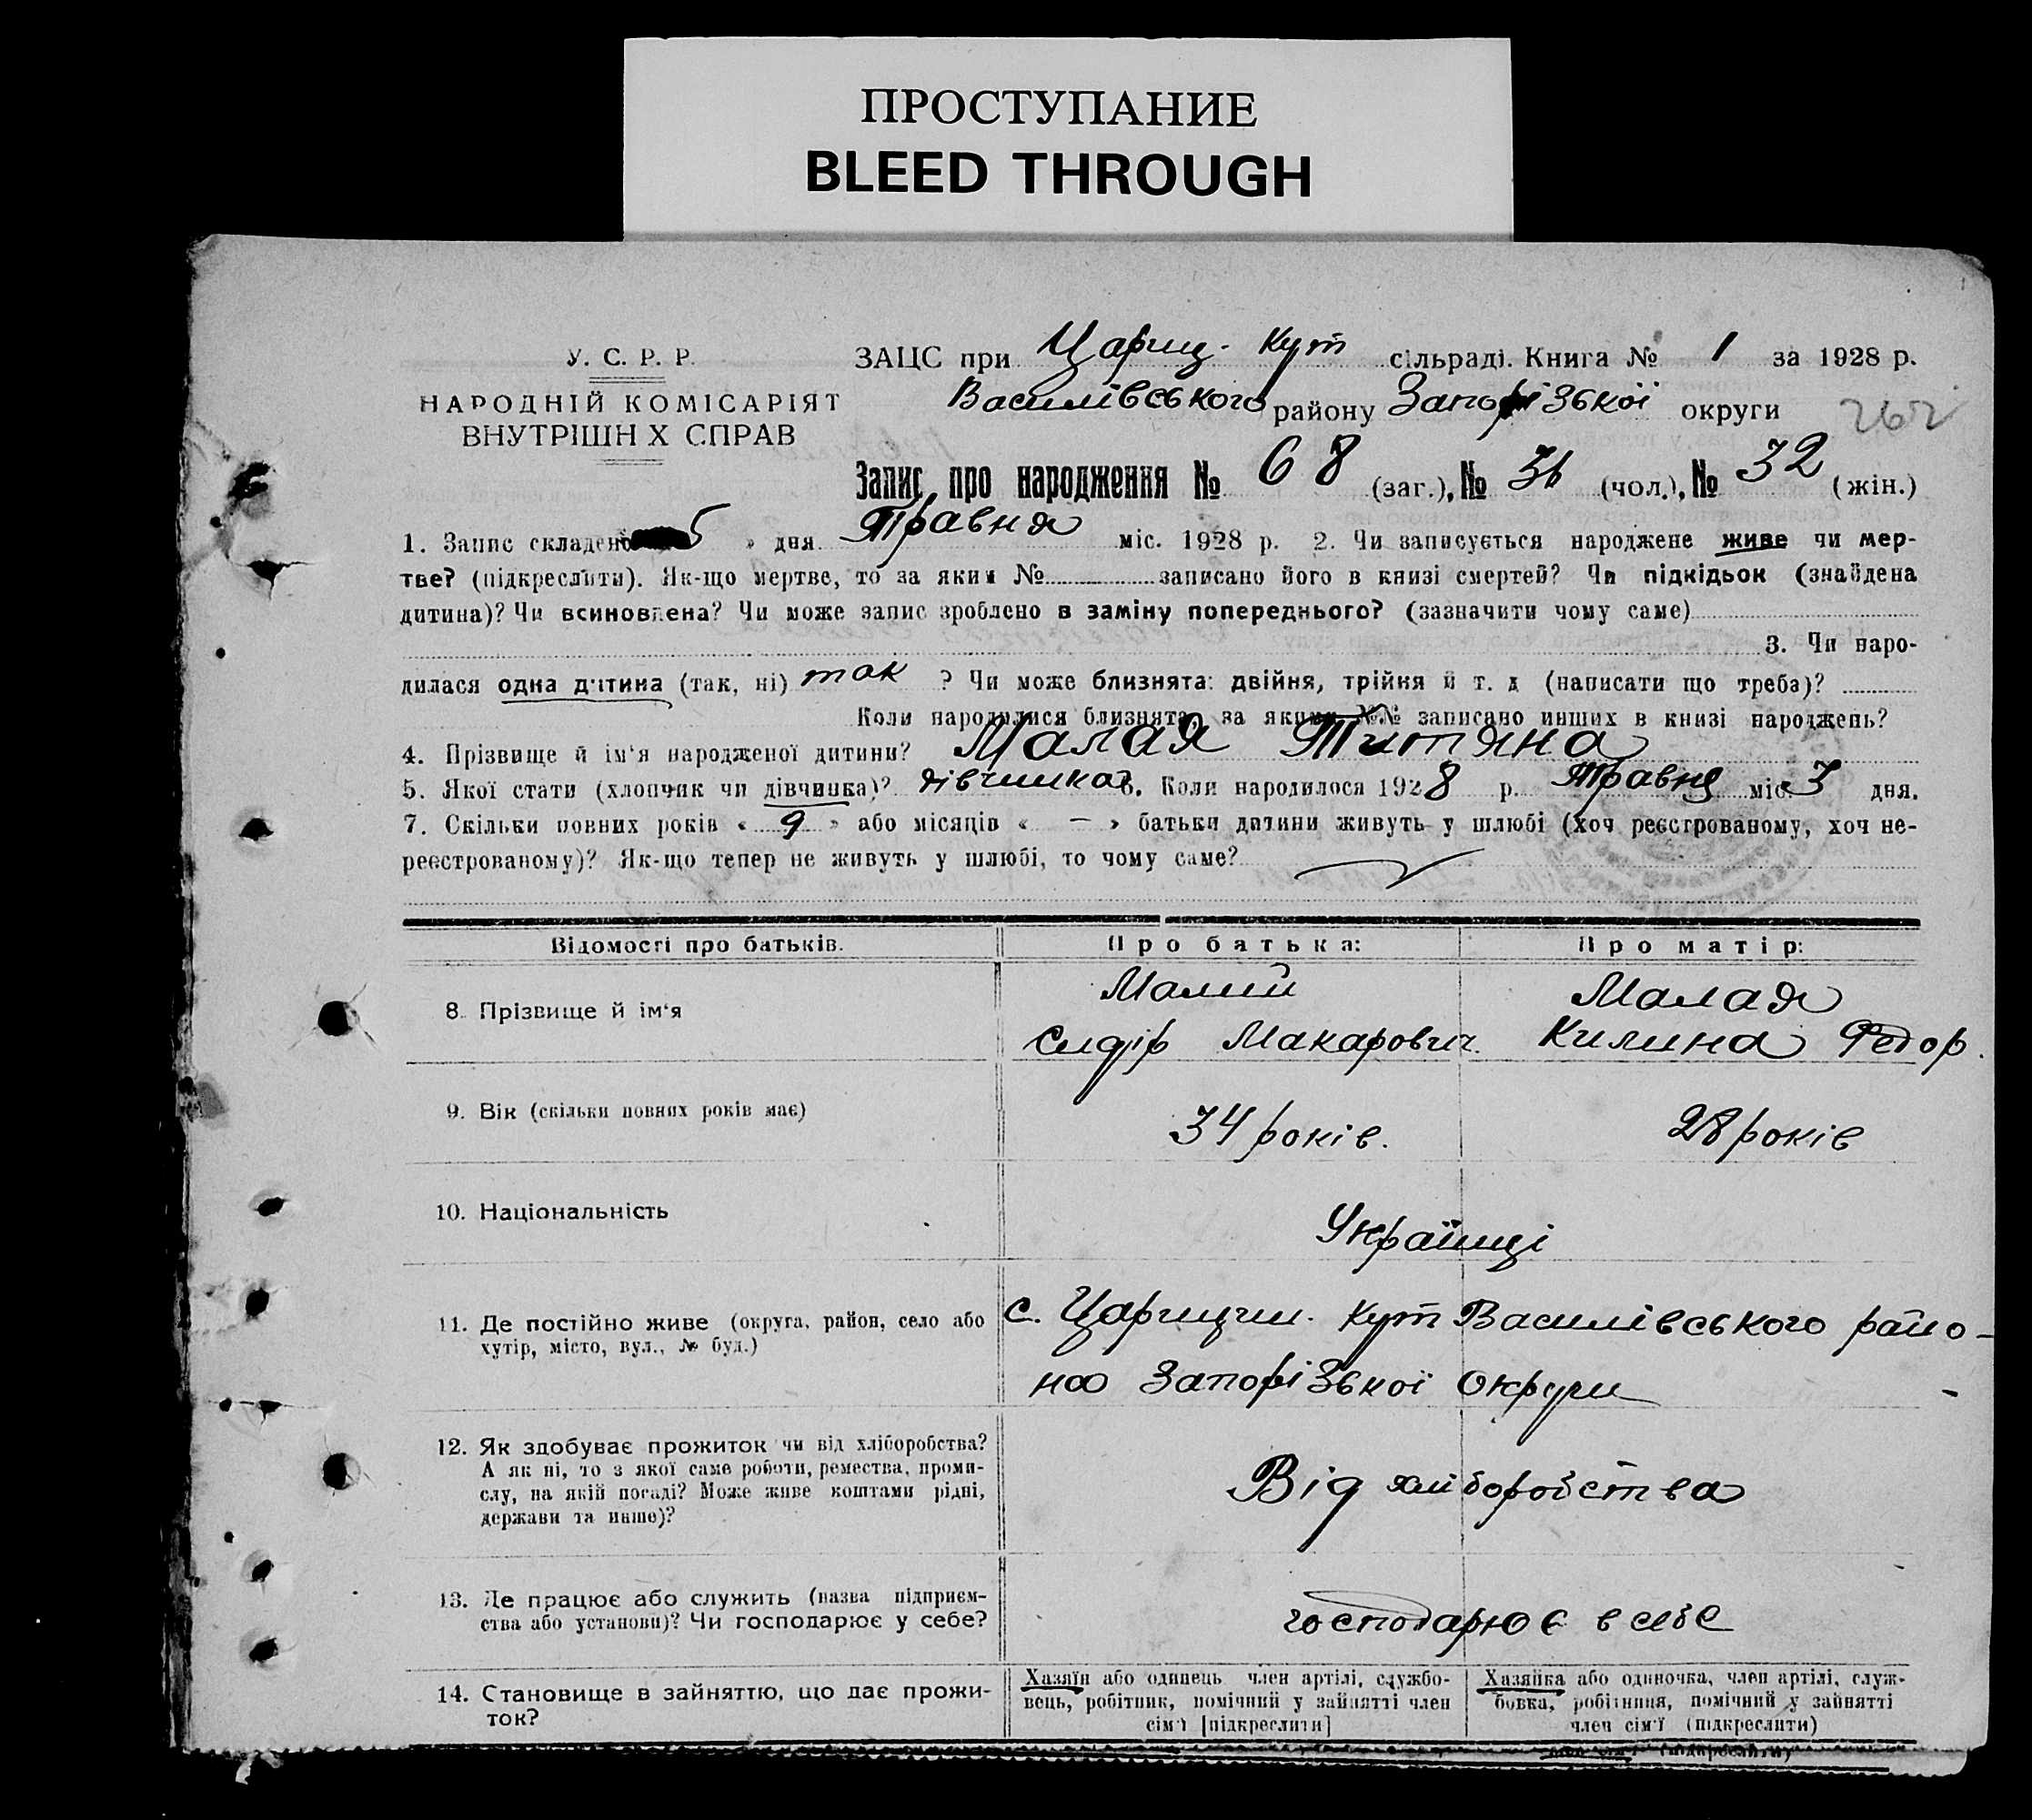 ПРОСТУПАНИЕ
BLEED THROUGH
У. С. Р. Р.
НАРОДНІЙ КОМІСАРІЯТ
ВНУТРІШН Х СПРАВ
ЗАЦС при Цариц. Кут сільраді. Книга № 1 за 1928 р.
Василівського району Запорізької округи
262
Запис про народження № 68 (заг.), № 36 (чол.), № 32 (жін.)
1. Запис складено 5 » дня Травня міс. 1928 р. 2. Чи записується народжене живе чи мер-
тве? (підкреслити). Як-що мертве, то за яким № записано його в книзі смертей? Чи підкідьок (знайдена
дитина)? Чи всиновлена? Чи може запис зроблено в заміну попереднього? (зазначити чому саме)
3. Чи наро-
дилася одна дитина (так, ні) так ? Чи може близнята: двійня, трійня й т. д (написати що треба)?
Коли народилися близнята, за якими №№ записано инших в книзі народжень?
4. Прізвище й ім'я народженої дитини? Малая Титяна
5. Якої стати (хлопчик чи дівчинка)? дівчинка 6. Коли народилося 1928 р. Травня міс. 3 дня.
7. Скільки повних років « 9 » або місяців « — » батьки дитини живуть у шлюбі (хоч реєстрованому, хоч не-
реєстрованому)? Як-що тепер не живуть у шлюбі, то чому саме?
Відомості про батьків.
Про батька:
Про матір:
8. Прізвище й ім'я
Малий
Сидір Макарович.
Малая
Килина Федор.
9. Вік (скільки повних років має)
34 років.
28 років
10. Національність
Українці
11. Де постійно живе (округа, район, село або
хутір, місто, вул., № буд.)
с. Царицин. Кут Василівського райо-
на Запорізької Округи
12. Як здобуває прожиток чи від хліборобства?
А як ні, то з якої саме роботи, ремества, проми-
слу, на якій посаді? Може живе коштами рідні,
держави та инше)?
Від хліборобства
13. Де працює або служить (назва підприєм-
ства або установи)? Чи господарює у себе?
господарює в себе
14. Становище в зайняттю, що дає прожи-
ток?
Хазяїн або одинець член артілі, службо-
вець, робітник, помічний у зайнятті член
сім'ї [підкреслити]
Хазяйка або одиночка, член артілі, служ-
бовка, робітниця, помічний у зайнятті
член сім'ї (підкреслити)